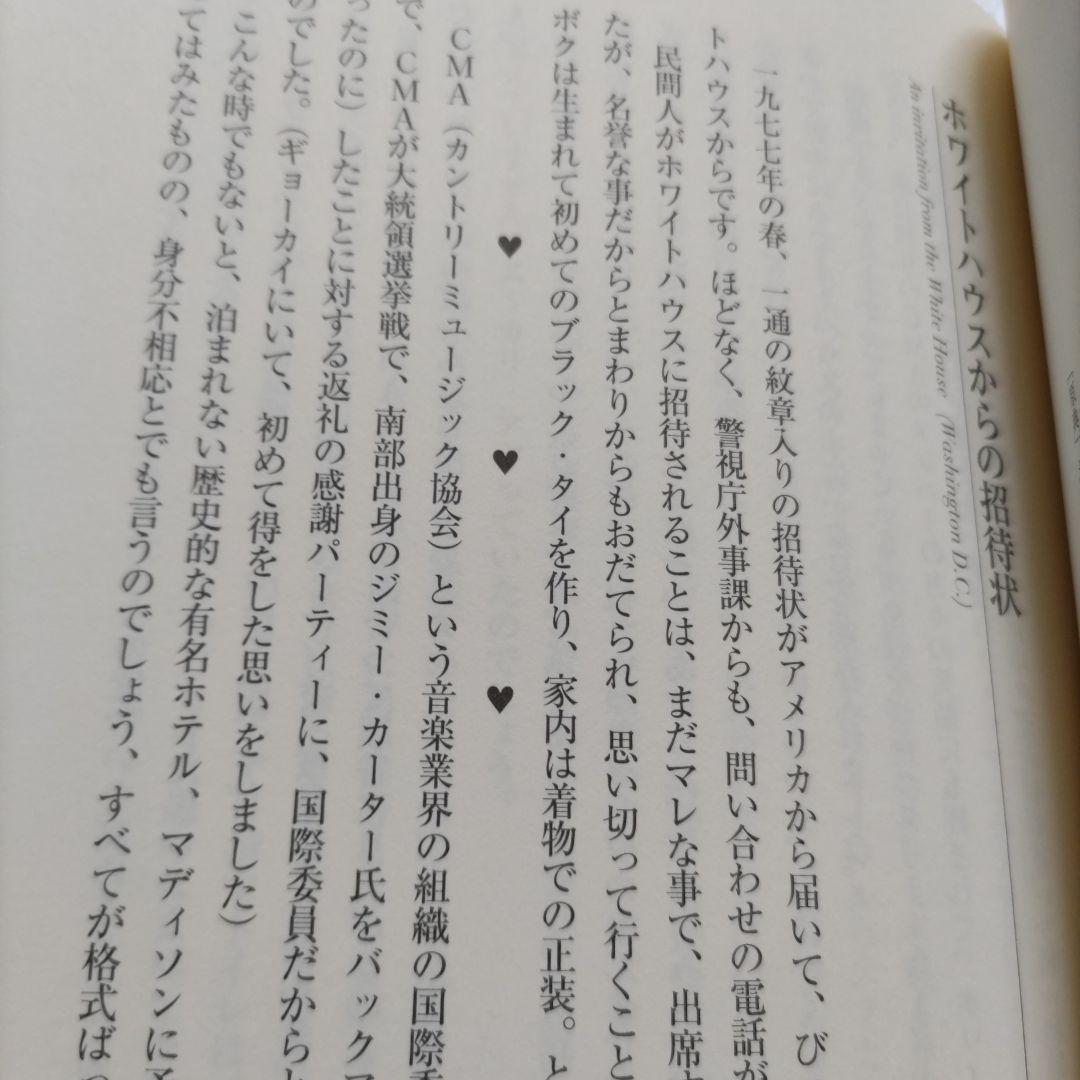 ホワイトハウスからの招待状
An invitation from the White House (Washington D.C.)
一九七七年の春、一通の紋章入りの招待状がアメリカから届いて、び
トハウスからです。ほどなく、警視庁外事課からも、問い合わせの電話が
民間人がホワイトハウスに招待されることは、まだマレな事で、出席
たが、名誉な事だからとまわりからもおだてられ、思い切って行くこと
ボクは生まれて初めてのブラック・タイを作り、家内は着物での正装。と
♥ ♥ ♥
CMA(カントリーミュージック協会)という音楽業界の組織の国際
で、CMAが大統領選挙戦で、南部出身のジミー・カーター氏をバック
ったのに)したことに対する返礼の感謝パーティーに、国際委員だから
のでした。(ギョーカイにいて、初めて得をした思いをしました)
こんな時でもないと、泊まれない歴史的な有名ホテル、マディソンに
てはみたものの、身分不相応とでも言うのでしょう、すべてが格式ば